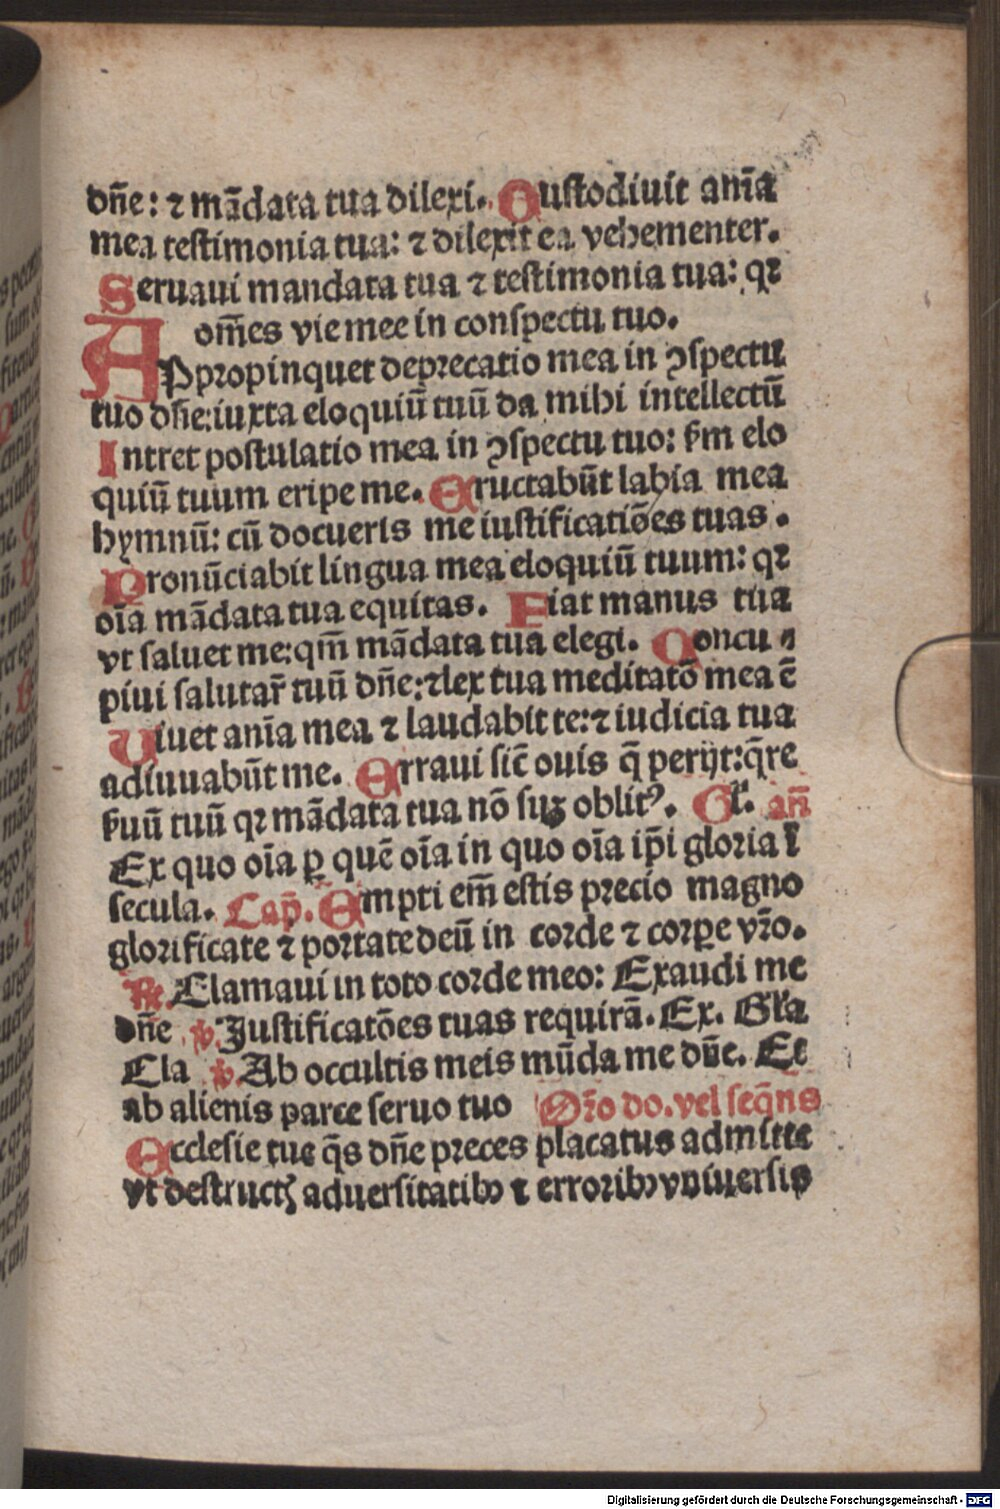 dn̄e: ⁊ mādata tua dilexi. Custodiuit anīa
mea testimonia tua: ⁊ dilexit ea vehementer.
Seruaui mandata tua ⁊ testimonia tua: qꝛ
om̄es vie mee in conspectu tuo.
APpropinquet deprecatio mea in ꝯspectu
tuo dn̄e: iuxta eloquiū tuū da mihi intellectū
Intret postulatio mea in ꝯspectu tuo: ẜm elo
quiū tuum eripe me. Eructabūt labia mea
hymnū: cū docueris me iustificatiōes tuas.
Pronūciabit lingua mea eloquiū tuum: qꝛ
oīa mādata tua equitas. Fiat manus tua
vt saluet me: qm̄ mādata tua elegi. Concu⸗
piui salutaꝝ tuū dn̄e: ⁊ lex tua meditatō mea ē
Uiuet anīa mea ⁊ laudabit te: ⁊ iudicia tua
adiuuabūt me. Erraui sic̄ ouis q̄ perijt: q̄re
ẜuū tuū qꝛ mādata tua nō suꝫ oblitꝰ. Gl̓. an̄
Ex quo oīa ꝑ quē oīa in quo oīa ip̄i gloria ī
secula. Cap̄. Empti em̄ estis precio magno
glorificate ⁊ portate deū in corde ⁊ corꝑe vr̄o.
℟. Clamaui in toto corde meo: Exaudi me
dn̄e ℣. Justificatōes tuas requirā. Ex. Gl̓a
Cla ℣. Ab occultis meis mūda me dn̄e. Et
ab alienis parce seruo tuo Or̄o do. vel seq̄ns
Ecclesie tue q̄s dn̄e preces placatus admitte
vt destructꝭ aduersitatibꝰ ⁊ erroribꝰ vniuersis
Digitalisierung gefördert durch die Deutsche Forschungsgemeinschaft - DFG